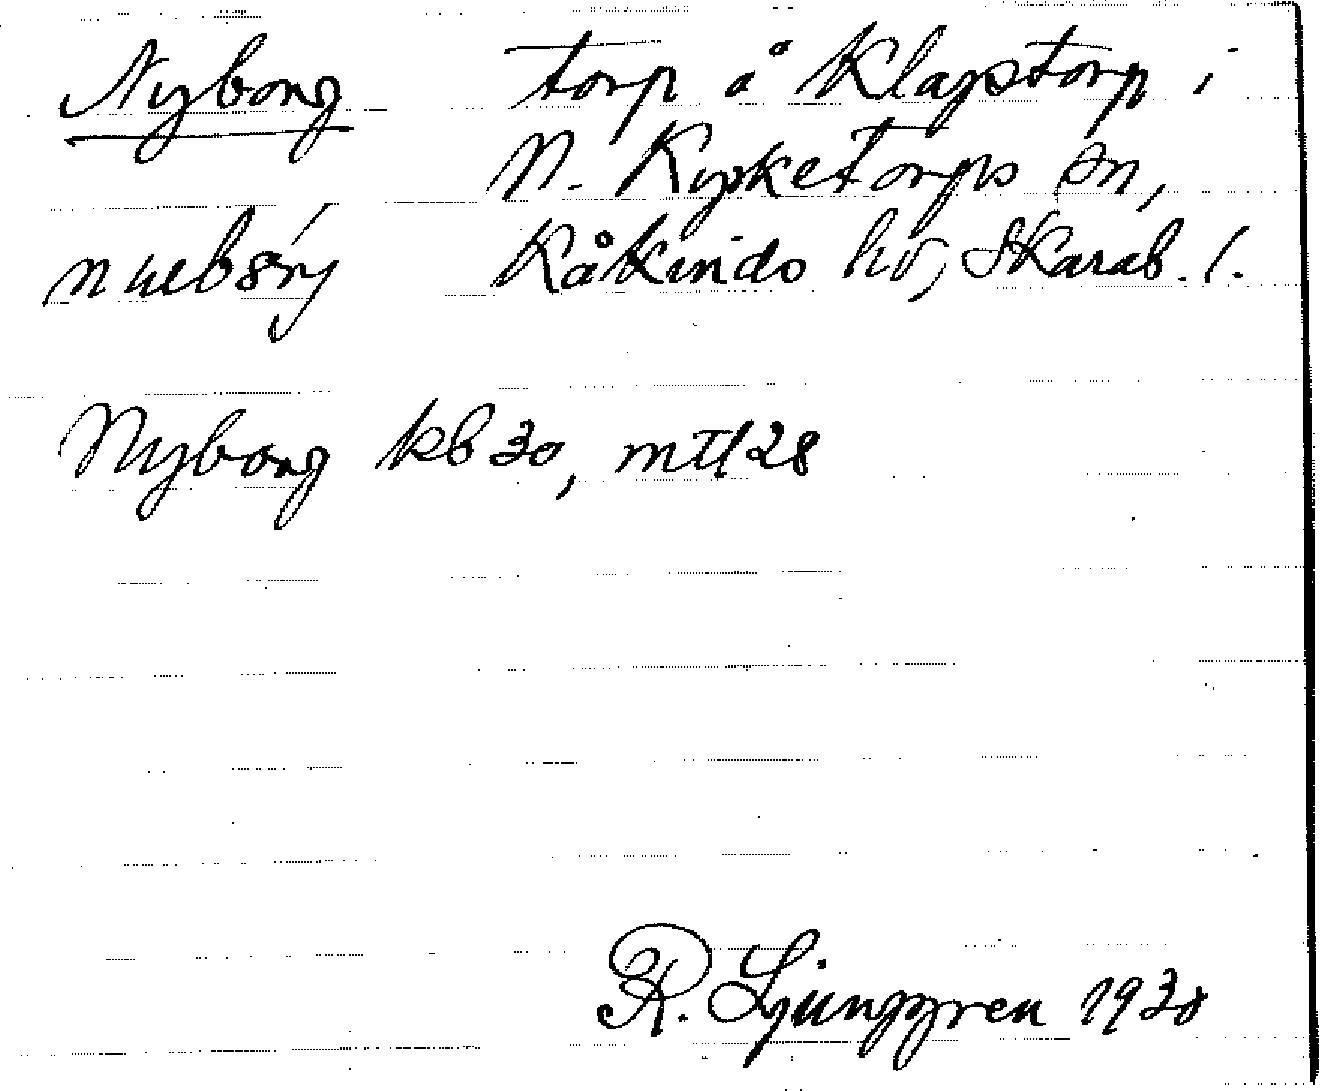 Nyborg torp å Klapstorp i
N. Kyrketorps sn,
Kåkinds hd, Skarab. l.
Nyborg kb 30, mtl 28
R. Ljunggren 1930